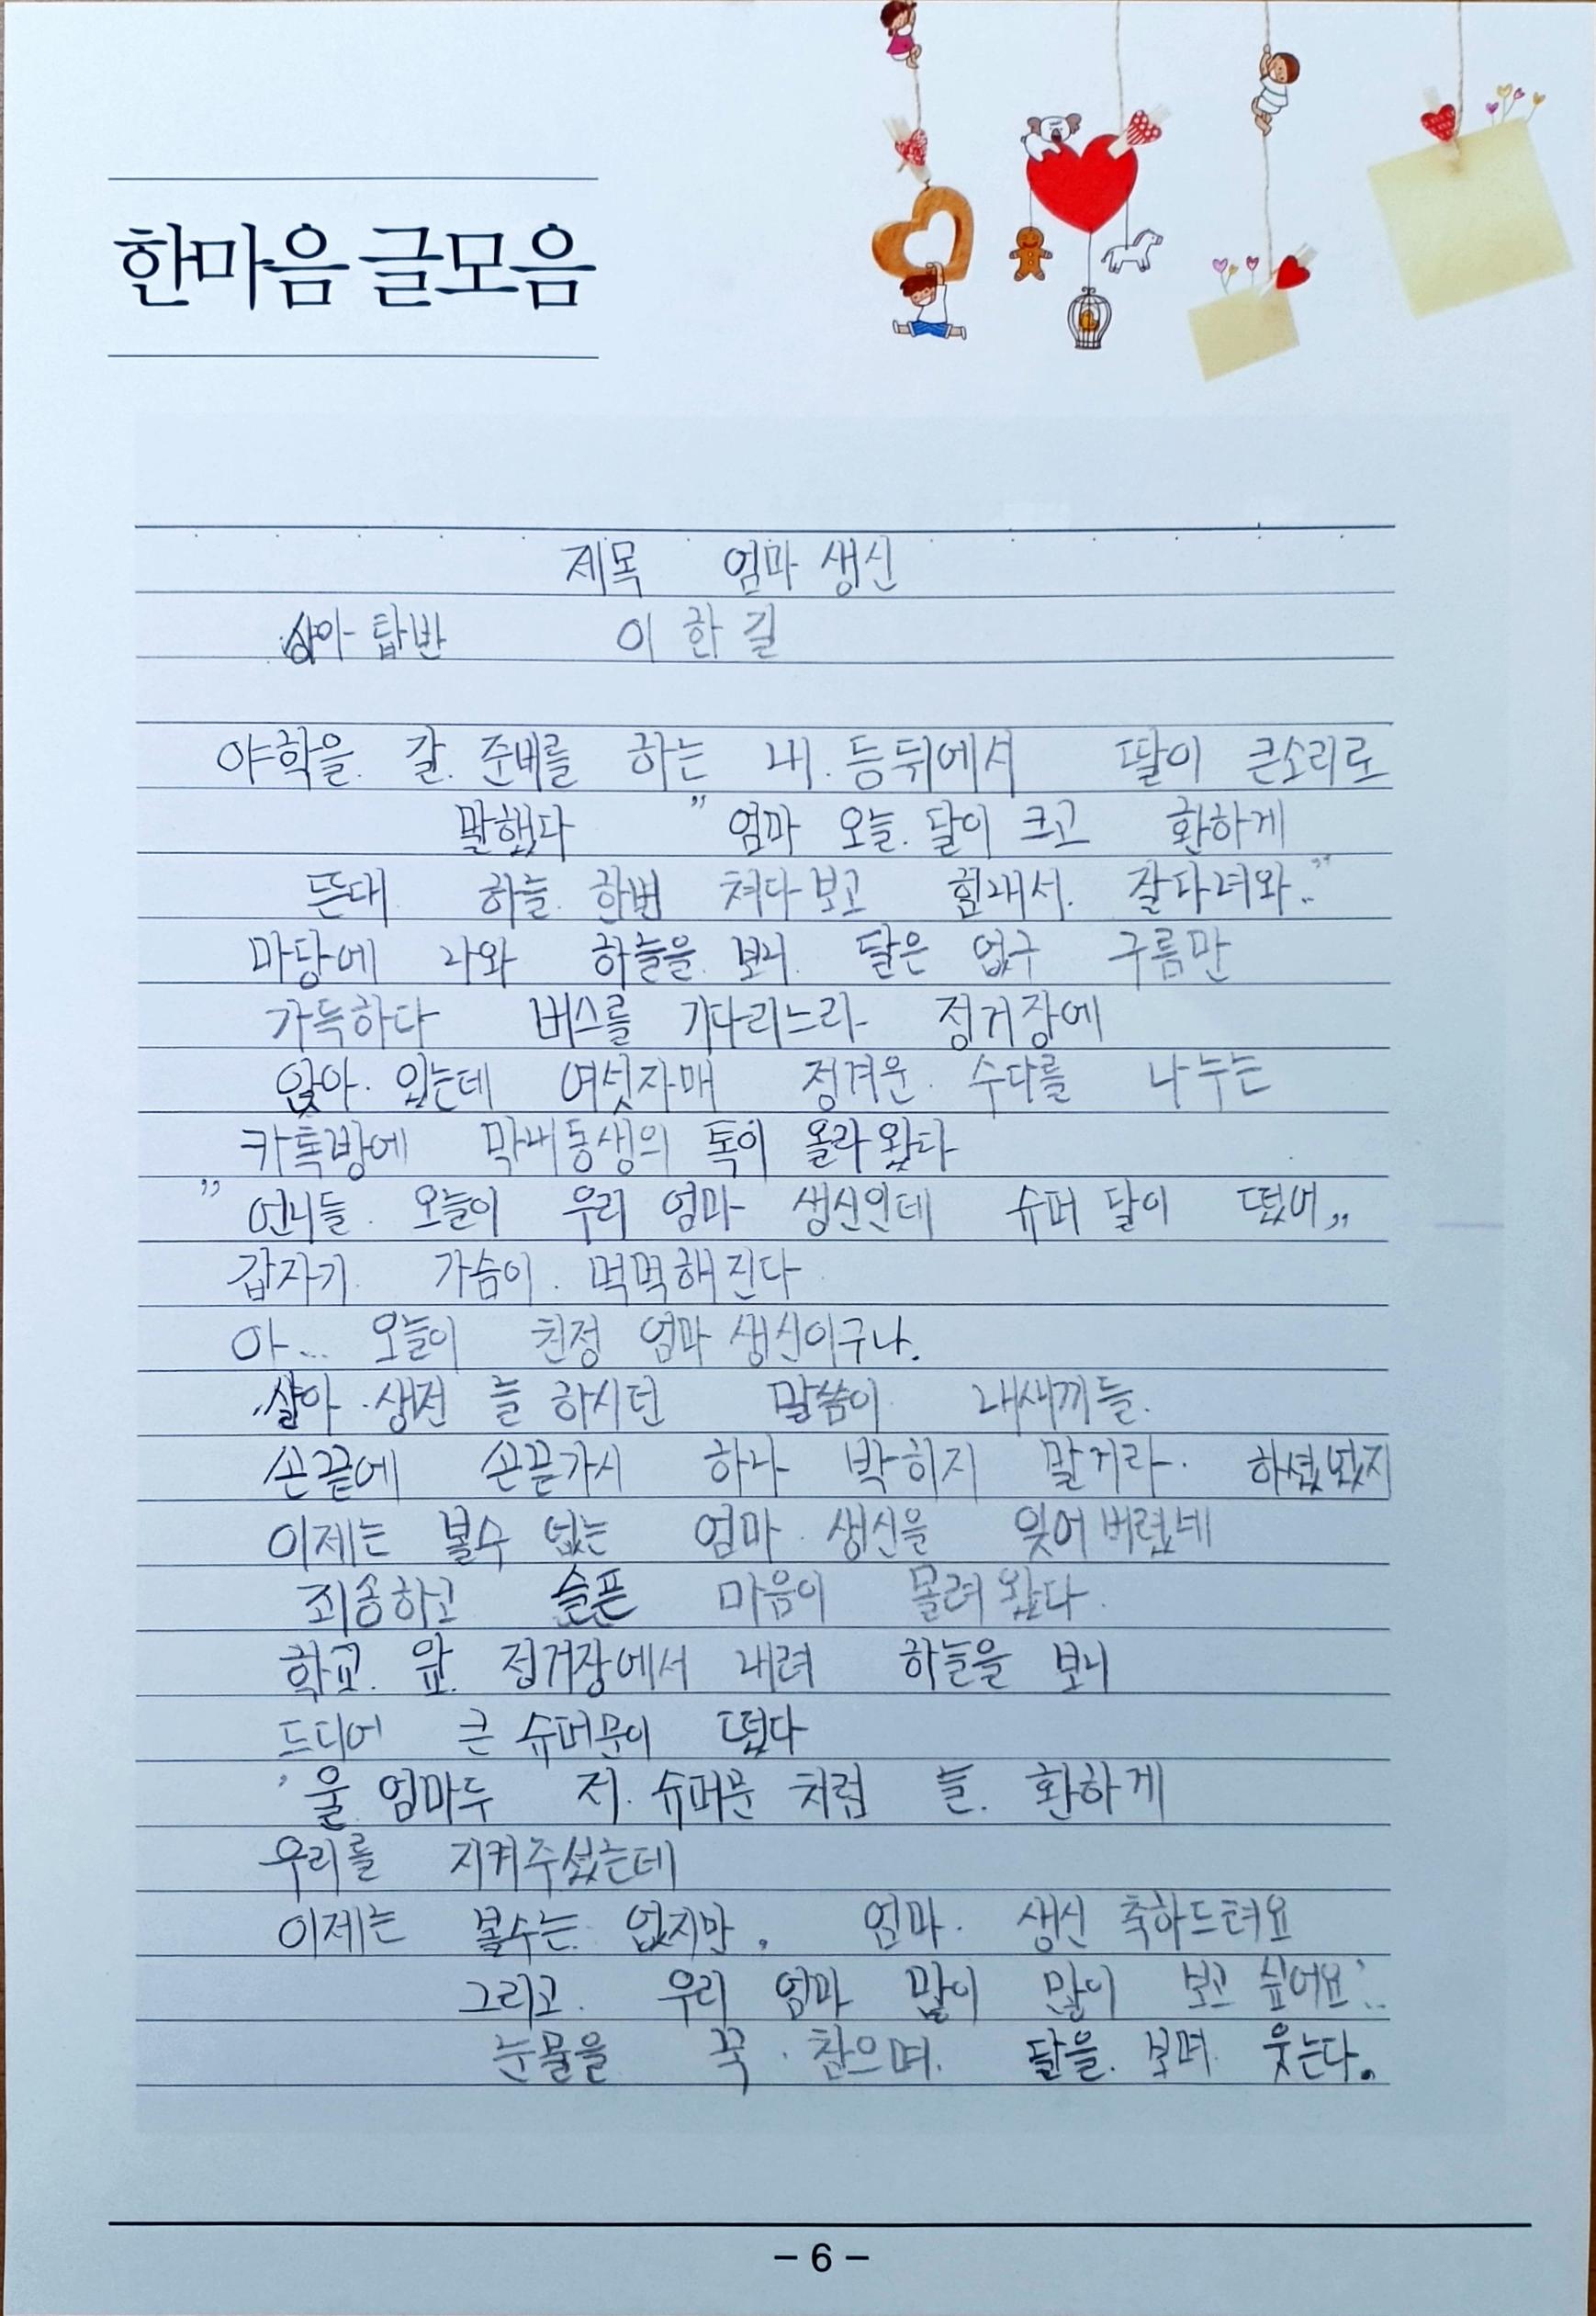 한마음 글모음
제목 엄마 생신
상아탑반 이한길
야학을 갈 준비를 하는 내 등뒤에서 딸이 큰소리로
말했다 "엄마 오늘 달이 크고 환하게
뜬대 하늘 한번 쳐다보고 힘내서 잘다녀와.."
마당에 나와 하늘을 보니 달은 없구 구름만
가득하다 버스를 기다리느라 정거장에
앉아 있는데 여섯자매 정겨운 수다를 나누는
카톡방에 막내동생의 톡이 올라왔다
"언니들 오늘이 우리 엄마 생신인데 슈퍼 달이 떴어,,
갑자기 가슴이 먹먹해진다
아... 오늘이 친정 엄마 생신이구나.
살아 생전 늘 하시던 말씀이 내새끼들.
손끝에 손끝가시 하나 박히지 말거라. 하셨었지
이제는 볼수 없는 엄마 생신을 잊어버렸네
죄송하고 슬픈 마음이 몰려왔다.
학교 앞 정거장에서 내려 하늘을 보니
드디어 큰 슈퍼문이 떴다
'울 엄마두 저 슈퍼문 처럼 늘 환하게
우리를 지켜주셨는데
이제는 볼수는 없지만, 엄마 생신 축하드려요
그리고 우리 엄마 많이 많이 보고 싶어요'..
눈물을 꾹 참으며 달을 보며 웃는다.
– 6 –